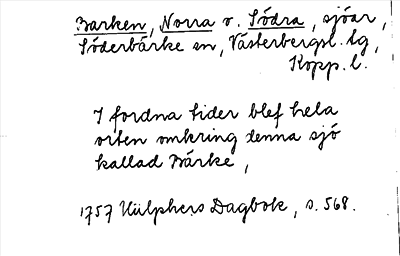 Barken, Norra o. Södra, sjöar,
Söderbärke sn, Västerbergsl. lg,
Kopp. l.
I fordna tider blef hela
orten omkring denna sjö
kallad Bärke,
1757 Hülphers Dagbok, s. 568.